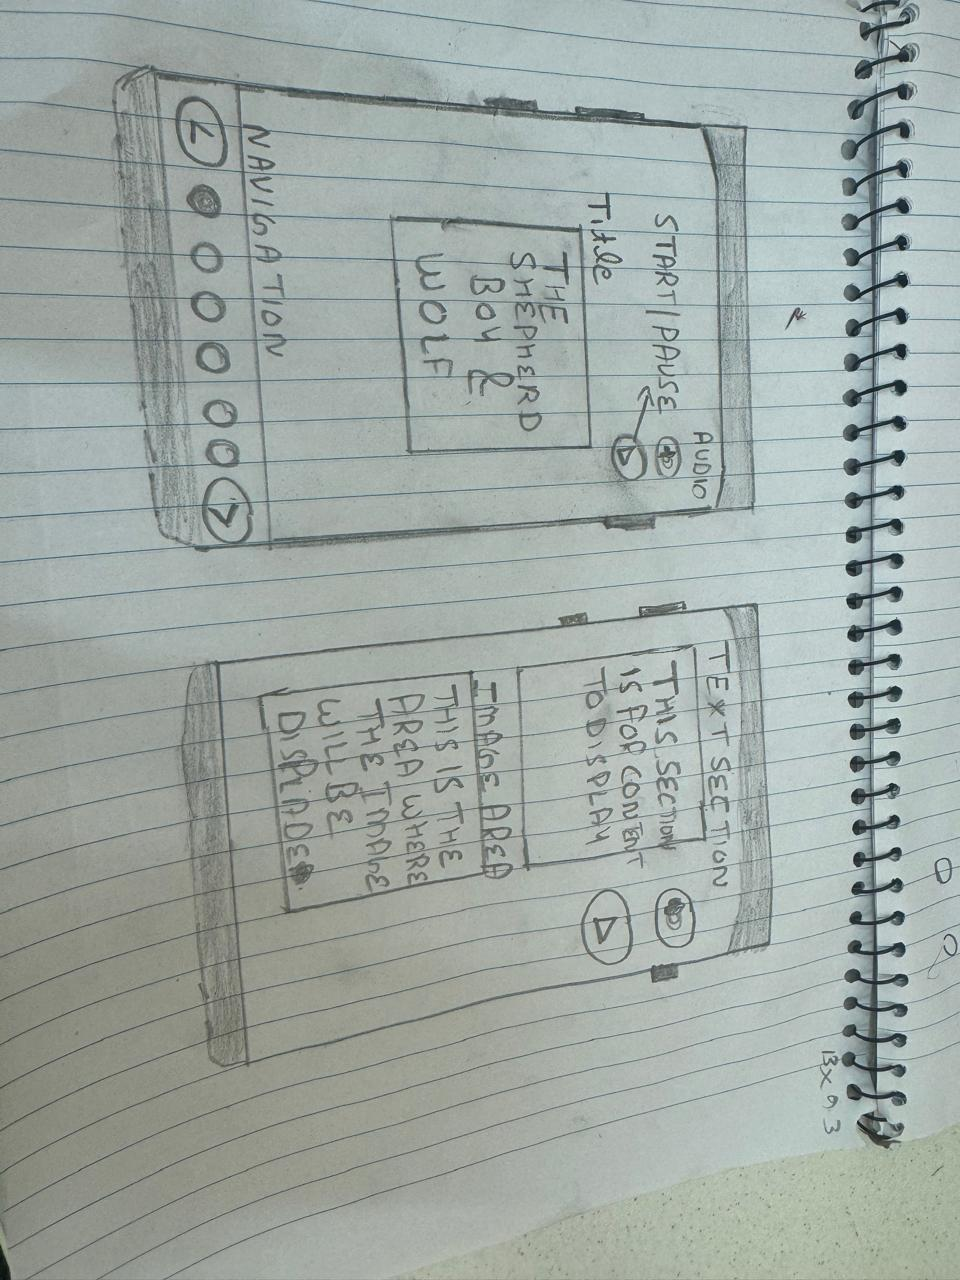 AUDIO
START/PAUSE
Title
THE
SHEPHERD
BOY &
WOLF
NAVIGATION
TEXT SECTION
THIS SECTION
IS FOR CONTENT
TO DISPLAY
IMAGE AREA
THIS IS THE
AREA WHERE
THE IMAGE
WILL BE